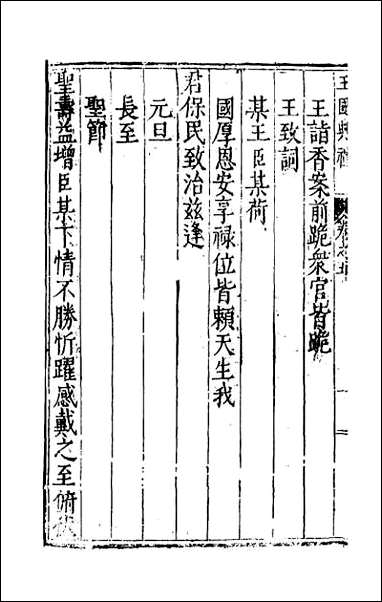 王國典禮 卷之五
王詣香案前跪衆官皆跪
王致詞
某王臣某荷
國厚恩安享祿位皆賴天生我
君保民致治兹逢
元旦
長至
聖節
聖壽益增臣某下情不勝忻躍感戴之至俯伏